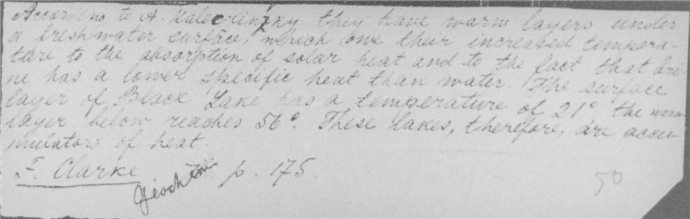 According to A. Kalecrinzky they have warm layers under
a freshwater surface, which owe their increased tempera-
ture to the absorption of solar heat and to the fact that bri-
ne has a lower specific heat than water. The surface
layer of Black Lake has a temperature of 21° the warm
layer below reaches 56°. These lakes, therefore, are accu-
mulators of heat.
F. Clarke p. 175.
50